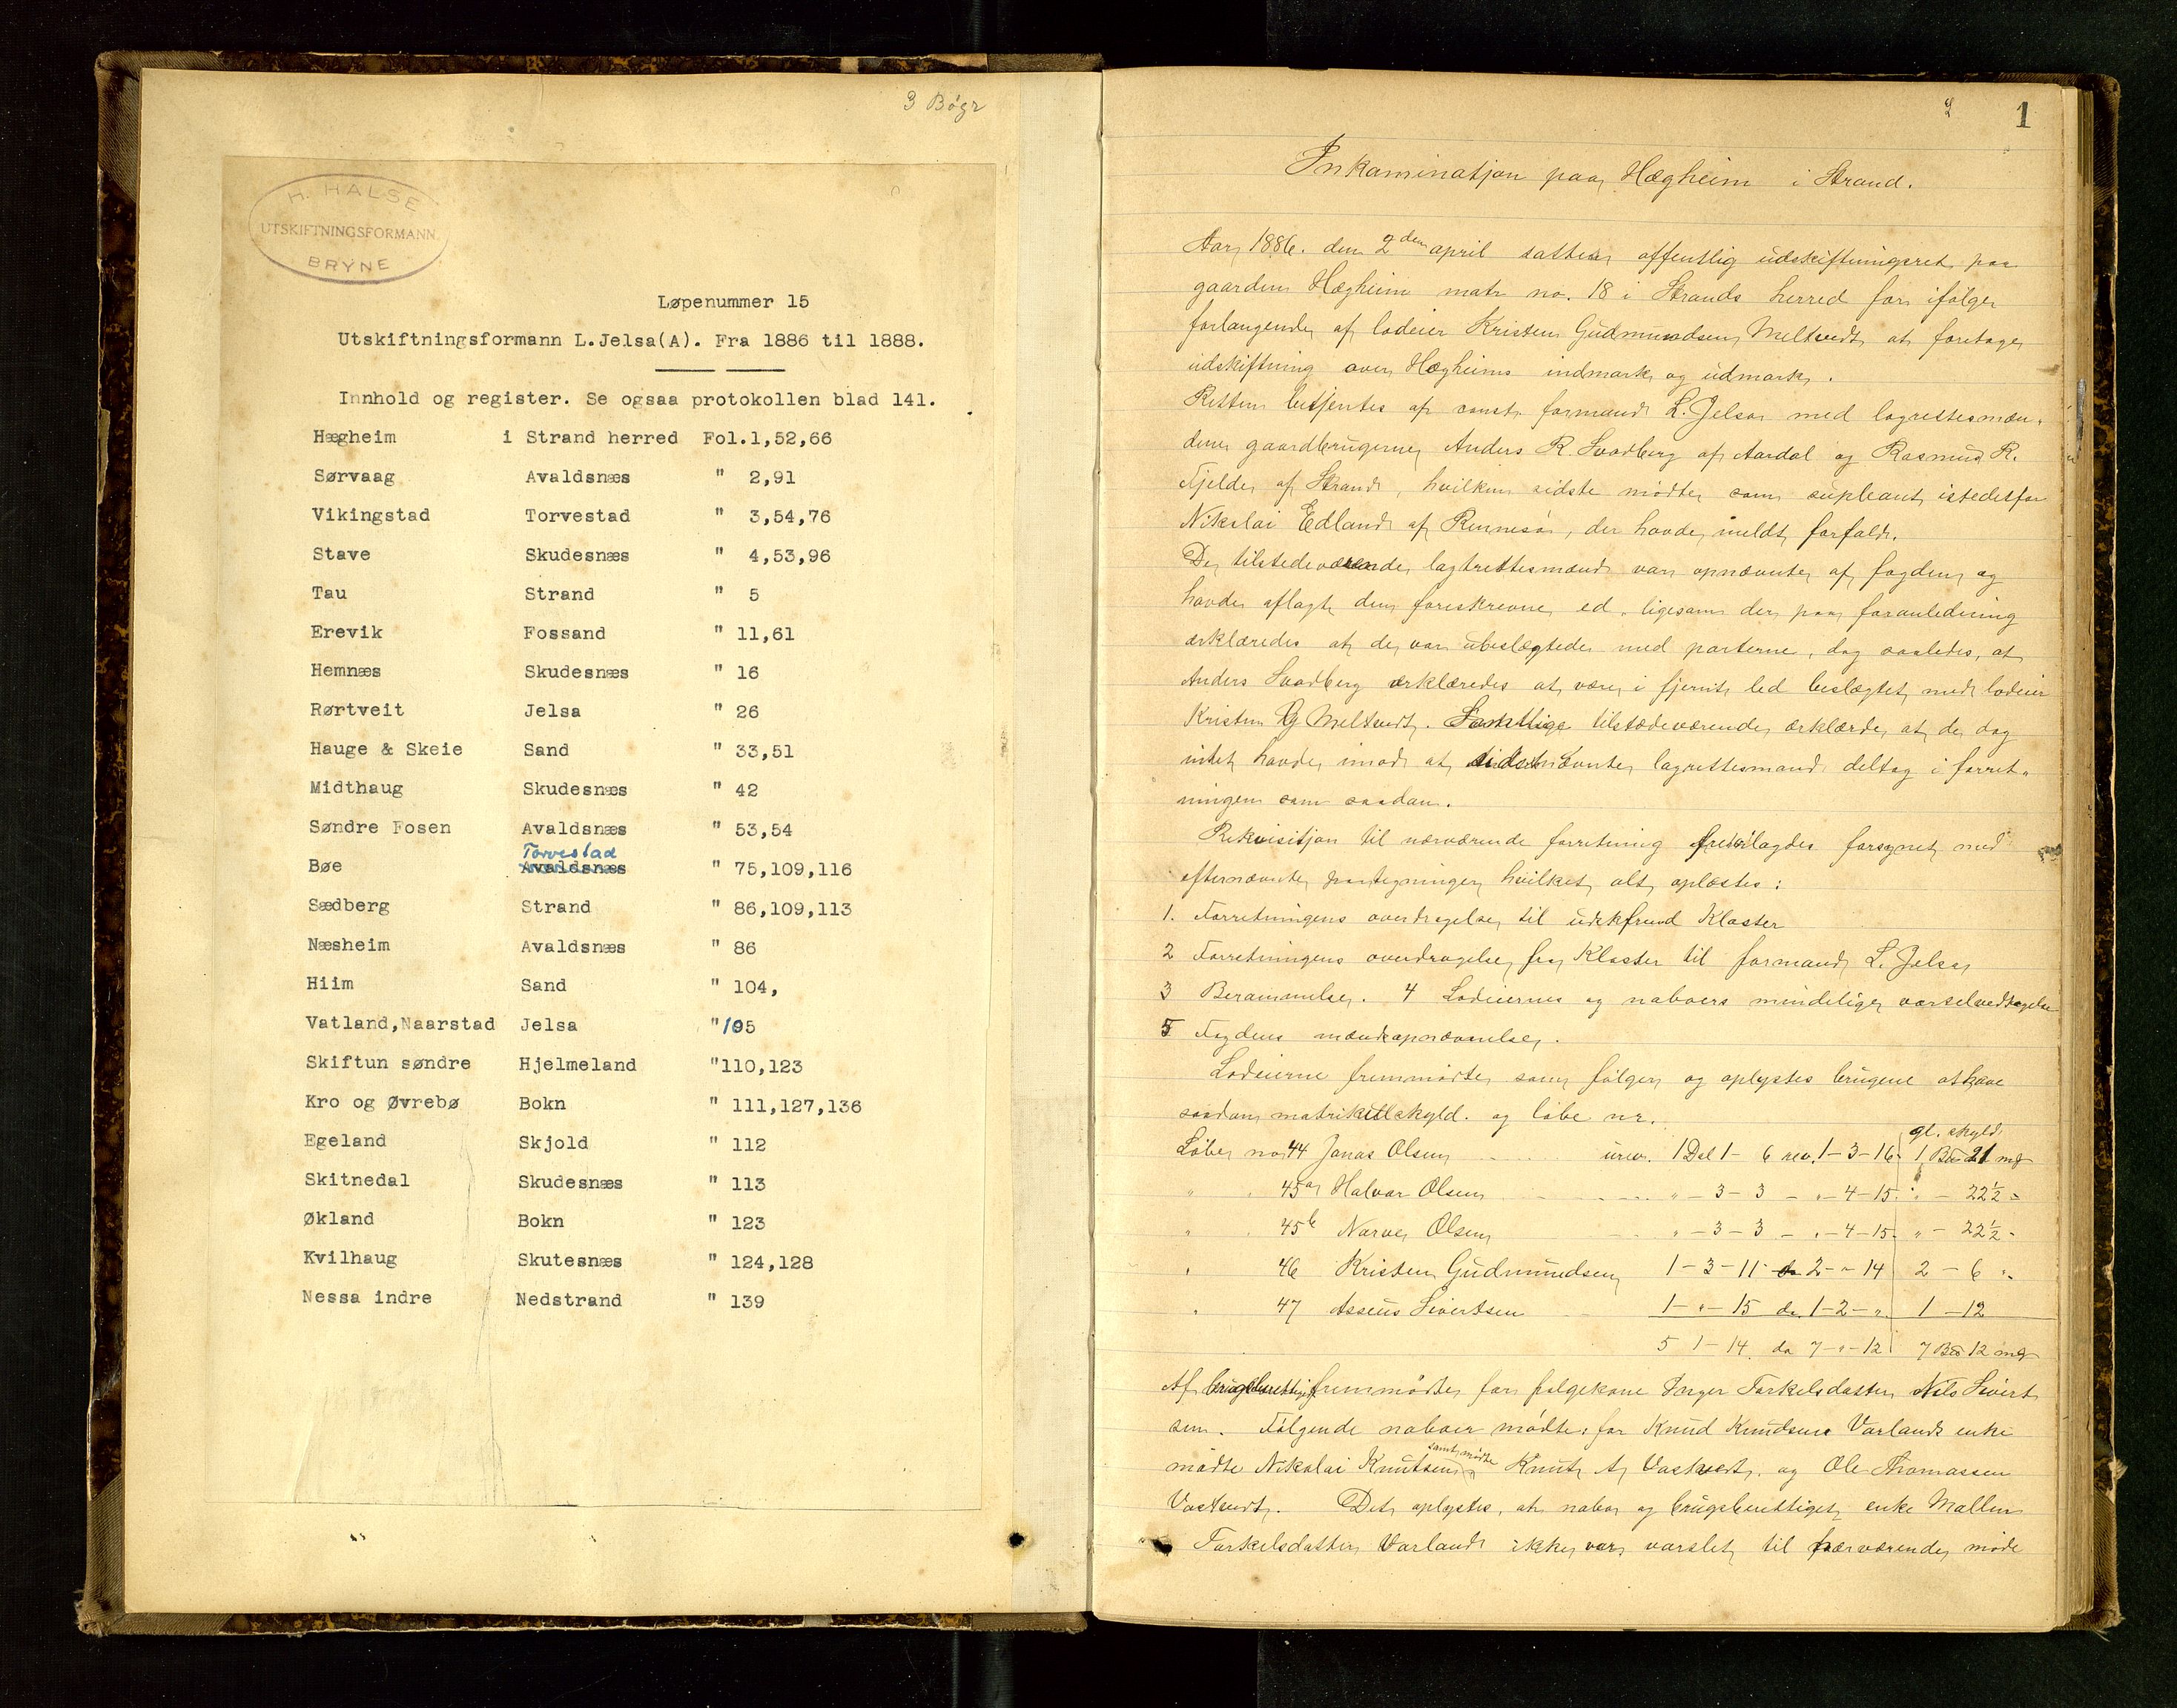 3 Bögr
H. HALSE
UTSKIFTNINGSFORMANN
BRYNE
Løpenummer 15
Utskiftningsformann L.Jelsa(A). Fra 1886 til 1888.
Innhold og register. Se ogsaa protokollen blad 141.
Hægheim i Strand herred Fol.1,52,66
Sørvaag Avaldsnæs " 2,91
Vikingstad Torvestad " 3,54,76
Stave Skudesnæs " 4,53,96
Tau Strand " 5
Erevik Fossand " 11,61
Hemnæs Skudesnæs " 16
Rørtveit Jelsa " 26
Hauge & Skeie Sand " 33,51
Midthaug Skudesnæs " 42
Søndre Fosen Avaldsnæs " 53,54
Torvestad
Bøe Avaldsnæs " 75,109,116
Sædberg Strand " 86,109,113
Næsheim Avaldsnæs " 86
Hiim Sand " 104,
Vatland,Naarstad Jelsa "105
Skiftun søndre Hjelmeland "110,123
Kro og Øvrebø Bokn " 111,127,136
Egeland Skjold " 112
Skitnedal Skudesnæs " 113
Økland Bokn " 123
Kvilhaug Skutesnæs " 124,128
Nessa indre Nedstrand " 139
1
Inkaminatjon paa Hægheim i Strand.
Aar 1886. den 2den april sattes offentlig udskiftningsret paa
gaarden Hægheim matr no. 18 i Strands herred for ifølge
forlangende af lodeier Kristen Gudmundsen Meltvedt at foretage
udskiftning over Hægheims indmark og udmark.
Retten betjentes af const. formand L. Jelsa med lagrettesmæn-
dene gaardbrugerne Anders R. Svadberg af Aardal og Rasmus R.
Fjelde af Strand, hvilken sidste mødte som supleant istedetfor
Nikolai Edland af Rennesø, der havde meldt forfald.
De tilstedeværende lagrettesmænd var opnævnte af fogden og
havde aflagt den foreskrevne ed. ligesom der paa foranledning
erklæredes at de var ubeslægtede med parterne, dog saaledes, at
Anders Svadberg erklæredes at være i fjernt led beslægtet med lodeier
Kristen G Meltvedt. Samtlige tilstædeværende erklærde, at de dog
intet havde imod at sidstnævnte lagrettesmand deltog i forret-
ningen som saadan.
Rekvisitjon til nærværende forretning fremlagdes forsynet med
efternævnte paategninger hvilket alt oplæstes:
1. Forretningens overdragelse til udskfrmd Kloster
2 Forretningens overdragelse fra Kloster til formand L. Jelsa
3 Berammelse. 4 Lodeiernes og naboers mindelige varselvedtagelse
5 Fogdens mændsopnævnelse.
Lodeierne fremmødte som følger og oplystes brugene at have
saadan matrikulskyld. og løbe nr.
gl. skyld
Løbe no 44 Jonas Olsen urev. 1 Dal 1 - 6 rev. 1-3-16 1 Bø 21 mg
" " 45a Halvor Olsen " - 3 - 3 - " - 4-15 " - 22½ "
" " 45b Narve Olsen " - 3 - 3 - " - 4-15 " - 22½ "
" 46 Kristen Gudmundsen 1 - 3 - 11 do 2 - " - 14 2 - 6 "
" 47 Asseus Sivertsen 1 - " - 15 do 1-2 - " 1 - 12
5 1 - 14 do 7 - " - 12 7 Bø 12 mg
Af brugsberettige fremmødte for følgekone Inger Torkelsdatter Nils Sivert
sen. Følgende naboer mødte: for Knud Knudsens Varlands enke
samt mødte
mødte Nikolai Knutsen Knut A og Ole Thomassen
Det oplystes, at nabo og brugsberettiget enke Mallene
Torkelsdatter Varland ikke var varslet til nærværende møde